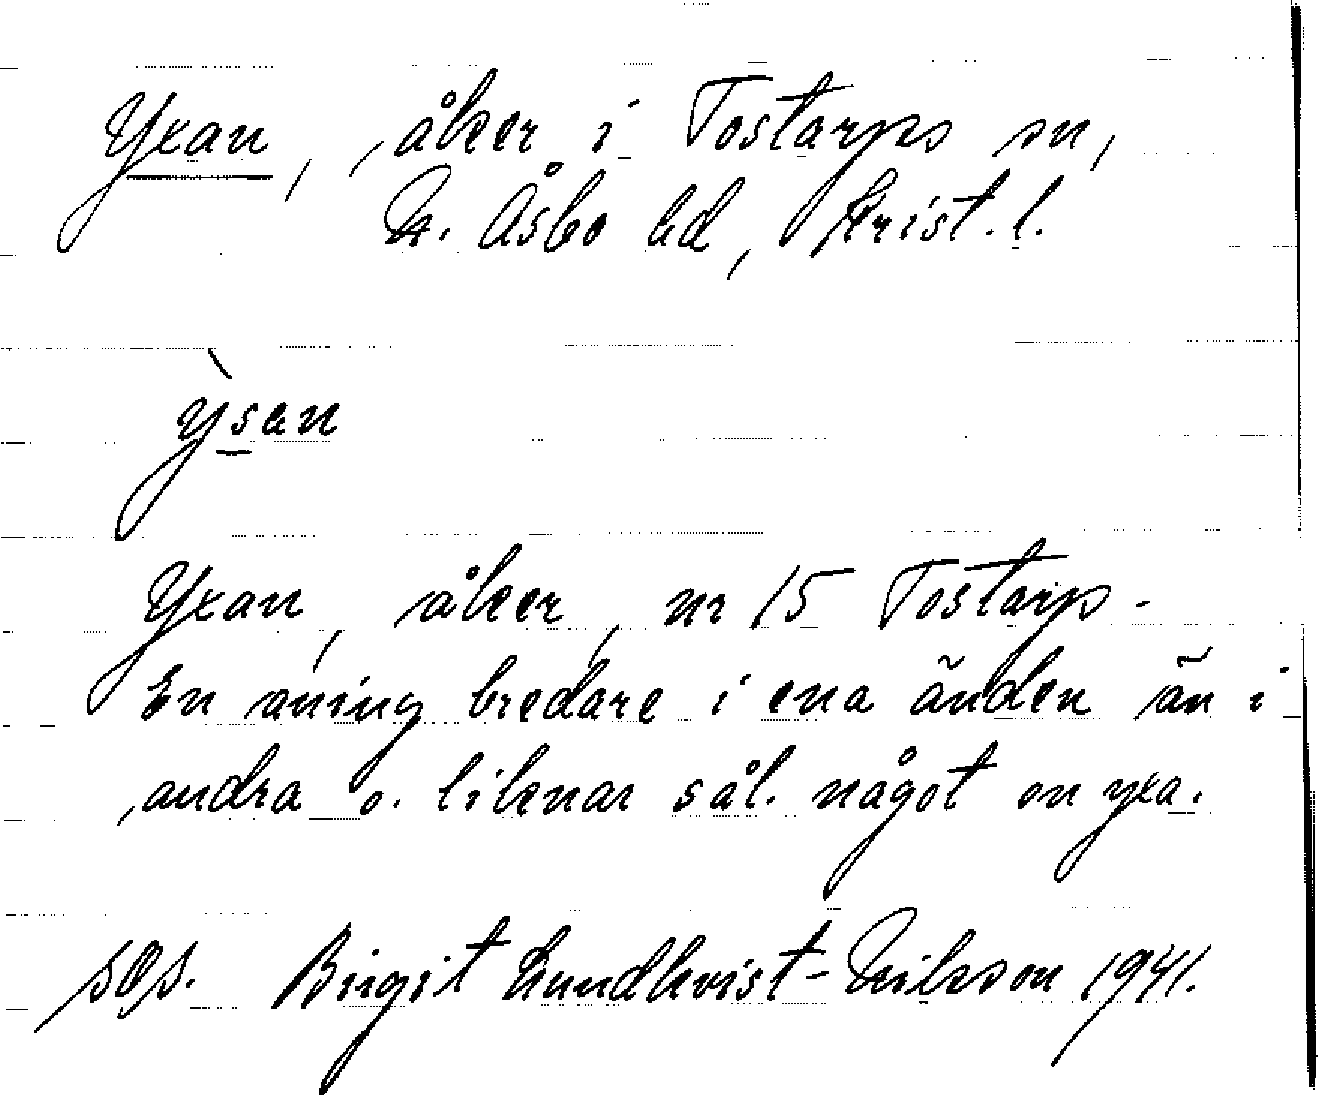 Yxan, åker i Tostarps sn,
N. Åsbo hd, Krist. l.
ỳsan
Yxan, åker, nr 15 Tostarp.
En aning bredare i ena änden än i
andra o. liknar sål. något en yxa.
Birgit Lundkvist-Nilsson 1941.